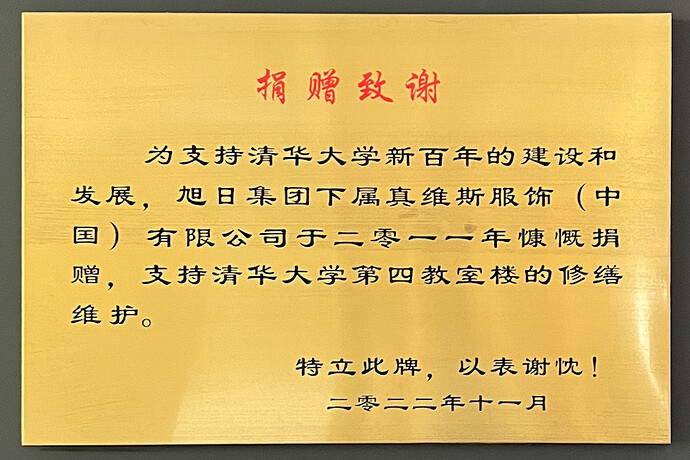 捐赠致谢
为支持清华大学新百年的建设和
发展，旭日集团下属真维斯服饰（中
国）有限公司于二零一一年慷慨捐
赠，支持清华大学第四教室楼的修缮
维护。
特立此牌，以表谢忱！
二零二二年十一月